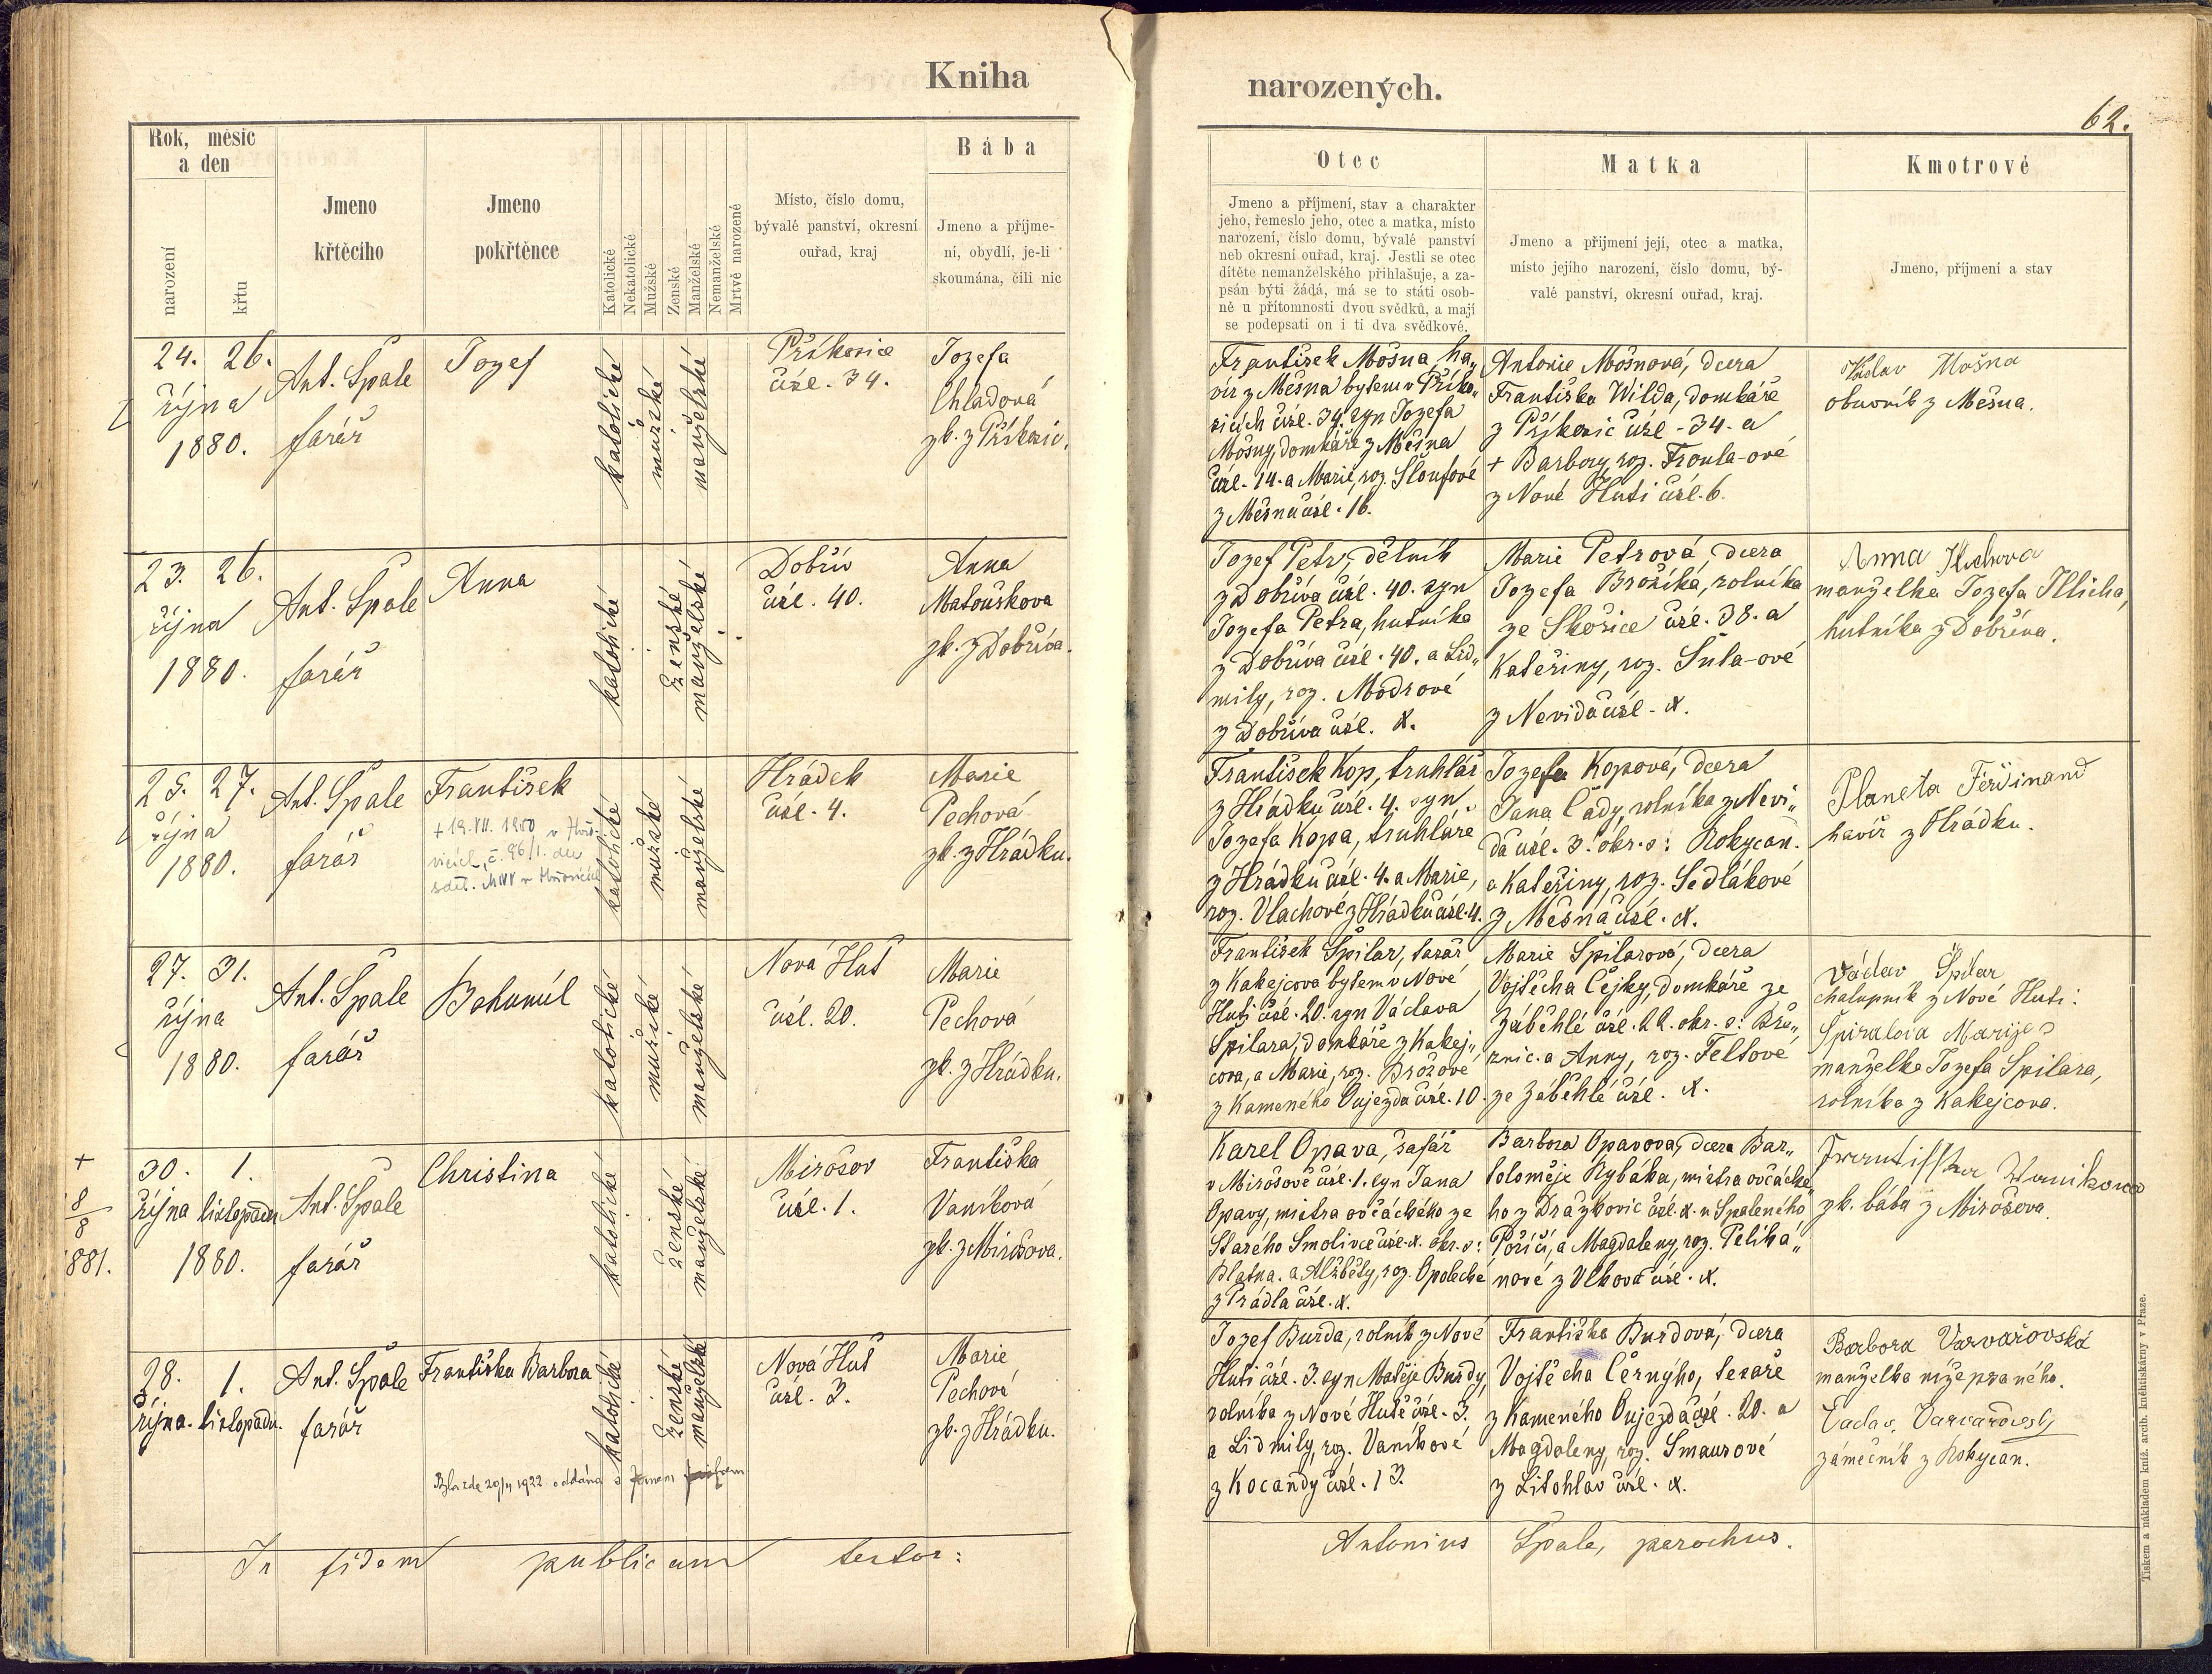 Kniha narozených.
62.
Rok, měsíc
a den
narození
křtu
Jmeno
křtěcího
Jmeno
pokřtěnce
Katolické
Nekatolické
Mužské
Ženské
Manželské
Nemanželské
Mrtvě narozené
Místo, číslo domu,
bývalé panství, okresní
ouřad, kraj
Bába
Jmeno a příjme-
ní, obydlí, je-li
skoumána, čili nic
Otec
Jmeno a příjmení, stav a charakter
jeho, řemeslo jeho, otec a matka, místo
narození, číslo domu, bývalé panství
neb okresní ouřad, kraj. Jestli se otec
dítěte nemanželského přihlašuje, a za-
psán býti žádá, má se to státi osob-
ně u přítomnosti dvou svědků, a mají
se podepsati on i ti dva svědkové.
Matka
Jmeno a přijmení její, otec a matka,
místo jejího narození, číslo domu, bý-
valé panství, okresní ouřad, kraj.
Kmotrové
Jmeno, příjmení a stav
24. 26.
října
1880.
Ant. Špale
farář
Jozef
katolické
mužské
manželské
Příkosice
čísl. 34.
Jozefa
Chladová
zk. z Příkosic.
František Mošna, ha„
víř z Mešna bytem v Příko„
sicích čísl. 34. syn Jozefa
Mošny, domkáře z Mešna
čísl. 14. a Marie, roz. Šloufové
z Mešna čísl. 16.
Antonie Mošnová, dcera
Františka Wilda, domkáře
z Příkosic čísl. 34. a
+ Barbory, roz. Froula-ové
z Nové Huti čísl. 6.
Václav Mošna
obuvník z Mešna.
23. 26.
října
1880.
Ant. Špale
farář
Anna
katolické
ženské
manželské
Dobřív
čísl. 40.
Anna
Matoušková
zk. z Dobříva.
Jozef Petr, dělník
z Dobříva čísl. 40. syn
Jozefa Petra, hutníka
z Dobříva čísl. 40. a Lid„
mily, roz. Modrové
z Dobříva čísl. X.
Marie Petrová, dcera
Jozefa Brožíka, rolníka
ze Skořice čísl. 38. a
Kateřiny, roz. Šula-ové
z Nevida čísl. X.
Anna Illichova
manželka Jozefa Illicha,
hutníka z Dobříva.
25. 27.
října
1880.
Ant. Špale
farář
František
katolické
mužské
manželské
Hrádek
čísl. 4.
Marie
Pechová
zk. z Hrádku.
František Kop, truhlář
z Hrádku čísl. 4. syn
Jozefa Kopa, truhláře
z Hrádku čísl. 4. a Marie,
roz. Vlachové z Hrádku čísl. 4.
Jozefa Kopová, dcera
Jana Čady, rolníka z Nevi„
da čísl. 3. okr. s: Rokycan.
a Kateřiny, roz. Sedlákové
z Mešna čísl. X.
Planeta Ferdinand
havíř z Hrádku.
27. 31.
října
1880.
Ant. Špale
farář
Bohumil
katolické
mužské
manželské
Nová Huť
čísl. 20.
Marie
Pechová
zk. z Hrádku.
František Špilar, tesař
z Kakejcova bytem v Nové
Huti čísl. 20. syn Václava
Špilara, domkáře z Kakej„
cova, a Marie, roz. Brožové
z Kameného Oujezda čísl. 10.
Marie Špilarová, dcera
Vojtěcha Čejky, domkáře ze
Záběhlé čísl. 22. okr. s: Bře„
znic. a Anny, roz. Feltové
ze Záběhlé čísl. X.
Václav Špilar
chalupník z Nové Huti.
Špiralova Marije
manželka Jozefa Špilara,
rolníka z Kakejcova.
+
8/8
1881.
30. 1.
října listopadu
1880.
Ant. Špale
farář
Christina
katolické
ženské
manželské
Mirošov
čísl. 1.
Františka
Vaníková
zk. z Mirošova.
Karel Opava, šafář
v Mirošově čísl. 1. syn Jana
Opavy, mistra ovčáckého ze
Starého Smolivce čísl. X. okr. s:
Blatna. a Alžběty, roz. Opolecké
z Prádla čísl. X.
Barbora Opavova, dcera Bar„
toloměje Rybáka, mistra ovčácké„
ho z Drážkovic čísl. X. u Spáleného
Poříčí, a Magdaleny, roz. Peliká„
nové z Vlkova čísl. X.
zk. bába z Mirošova.
28. 1.
října. listopadu.
Ant. Špale
farář
Františka Barbora
katolické
ženské
manželské
Nová Huť
čísl. 3.
Marie
Pechová
zk. z Hrádku.
Jozef Burda, rolník z Nové
Huti čísl. 3. syn Matěje Burdy,
rolníka z Nové Hutě čísl. 3.
a Lidmily, roz. Vaníkové
z Kocandy čísl. 13.
Františka Burdová, dcera
Vojtěcha Černýho, tesaře
z Kameného Oujezda čísl. 20. a
Magdaleny, roz. Smaurové
z Litohlav čísl. X.
Barbora Varvařovská
manželka níže psaného.
zámečník z Rokycan.
In fidem publicam testor:
Antonius Špale, parochus.
Tiskem a nákladem kníž. arcib. knihtiskárny v Praze.